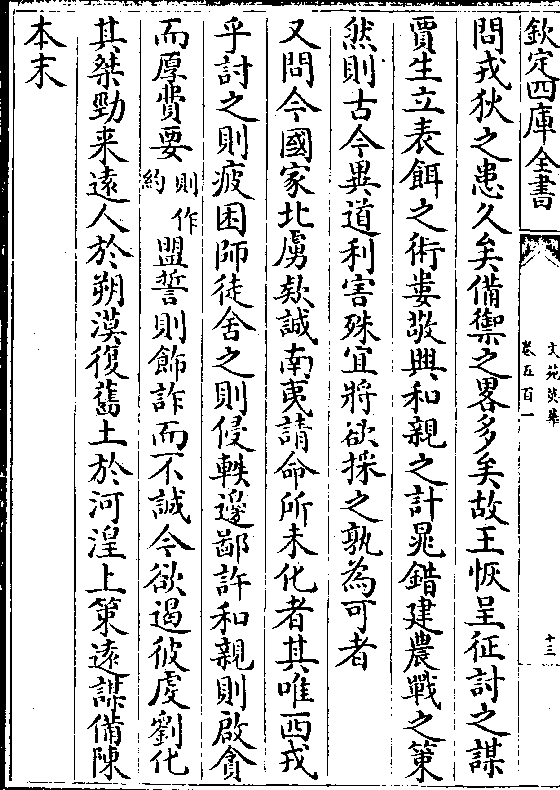 欽定四庫全書
文苑英華
卷五百一
十三
問戎狄之患久矣備禦之畧多矣故王恢呈征討之謀
賈生立表餌之術婁敬興和親之計晁錯建農戰之策
然則古今異道利害殊宜將欲採之孰為可者
又問今國家北虜欵誠南夷請命所未化者其唯西戎
乎討之則疲困師徒舍之則侵軼邊鄙許和親則啟貪
而厚費要則作約盟誓則飾詐而不誠今欲遏彼虔劉化
其桀勁来遠人於朔漠復舊土於河湟上策遠謀備陳
本末